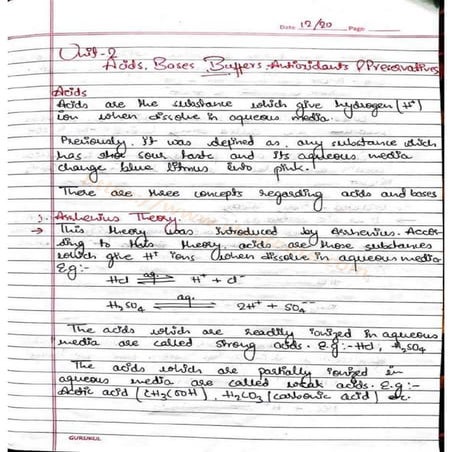 Date 12/20 Page
Unit-2
Acids, Bases, Buffers, Antioxidants & Preservatives
Acids
Acids are the substance which give hydrogen (H⁺)
ion when dissolve in aqueous media.
Previously it was defined as, any substance which
has sour taste and its aqueous media
change blue litmus into pink.
There are three concepts regarding acids and bases
1. Arrhenius Theory.
→ This theory was introduced by Arrhenius. Accor
ding to this theory, acids are those substances
which give H⁺ ions when dissolve in aqueous media
E.g:-
Hcl ⇌ aq. H⁺ + cl⁻
H₂SO₄ ⇌ aq. 2H⁺ + SO₄⁻⁻
The acids which are readily ionized in aqueous
media are called strong acids. E.g:- Hcl, H₂SO₄
The acids which are partially ionized in
aqueous media are called weak acids. E.g:-
Acetic acid (CH₃COOH), H₂CO₃ (carbonic acid) etc.
GURUKUL